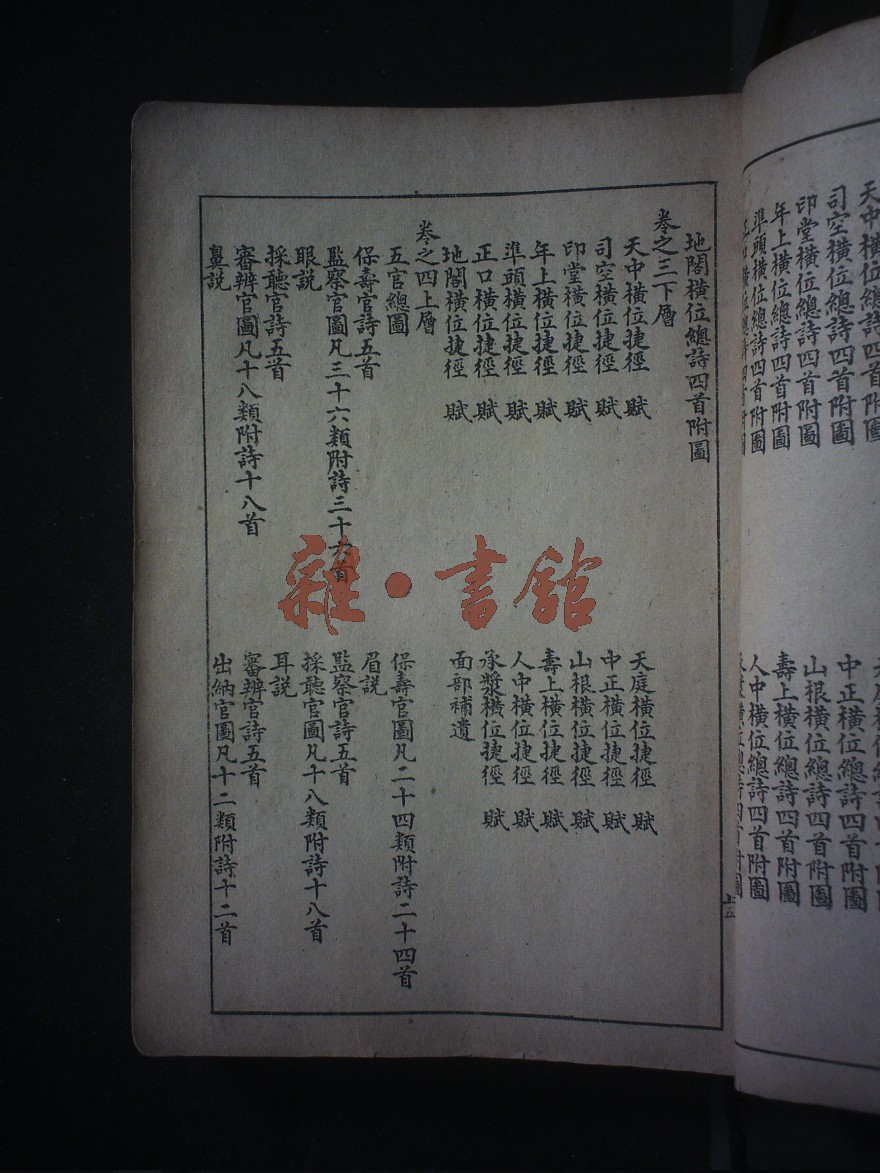 天中橫位總詩四首附圖
司空橫位總詩四首附圖
中正橫位總詩四首附圖
印堂橫位總詩四首附圖
山根橫位總詩四首附圖
年上橫位總詩四首附圖
壽上橫位總詩四首附圖
準頭橫位總詩四首附圖
人中橫位總詩四首附圖
地閣橫位總詩四首附圖
卷之三下層
天中橫位捷徑 賦
天庭橫位捷徑 賦
司空橫位捷徑 賦
中正橫位捷徑 賦
印堂橫位捷徑 賦
山根橫位捷徑 賦
年上橫位捷徑 賦
壽上橫位捷徑 賦
準頭橫位捷徑 賦
人中橫位捷徑 賦
正口橫位捷徑 賦
承漿橫位捷徑 賦
地閣橫位捷徑 賦
面部補遺
卷之四上層
五官總圖
保壽官圖凡二十四類附詩二十四首
保壽官詩五首
眉説
監察官圖凡三十六類附詩三十六首
監察官詩五首
眼説
採聽官圖凡十八類附詩十八首
採聽官詩五首
耳説
審辨官圖凡十八類附詩十八首
審辨官詩五首
鼻説
出納官圖凡十二類附詩十二首
雜·書館